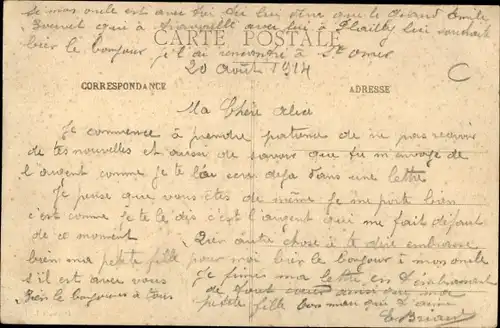 Si mon oncle est avec toi dis lui que le Grand Emile
qui a travaillé avec lui à Plailly lui souhaite
bien le bonjour je l'ai rencontré à St Omer
CARTE POSTALE
20 Août 1914
CORRESPONDANCE ADRESSE
Ma Chère Alice
Je commence à prendre patience de ne pas recevoir
de tes nouvelles et aussi de savoir que tu m'envoye de
l'argent comme je te l'ai déjà dans une lettre
Je pense que vous êtes de même je me porte bien
c'est comme je te le dis c'est l'argent qui me fait défaut
de ce moment Rien autre chose à te dire embrasse
bien ma petite fille pour moi bien le bonjour à mon oncle
s'il est avec vous Je fini ma lettre en t'embrassant
Bien le bonjour à tous de tout coeur ainsi que ma
petite fille ton mari qui t'aime
E Briand